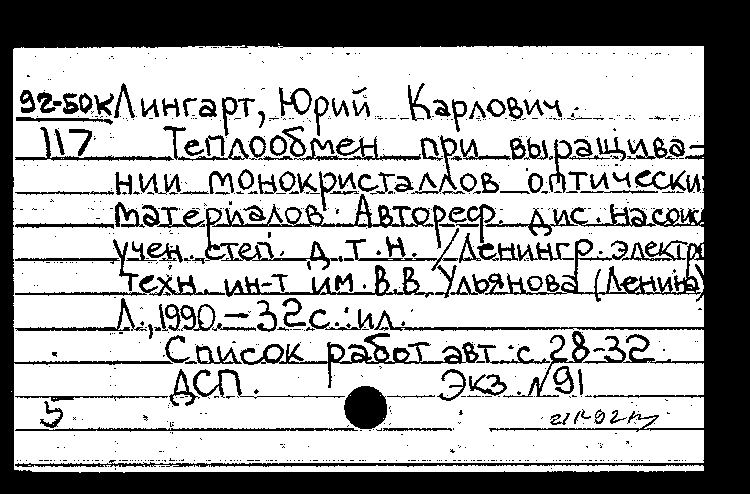 92-50к Лингарт, Юрий Карлович.
117 Теплообмен при выращива-
нии монокристаллов оптически
материалов. Автореф. дис. на соиск
учен. степ. д.т.н. /Ленингр. электро
техн. ин-т им. В.В. Ульянова (Ленина)
Л., 1990. - 32 с.: ил.
Список работ авт. с. 28-32
ДСП. Экз. №91
5